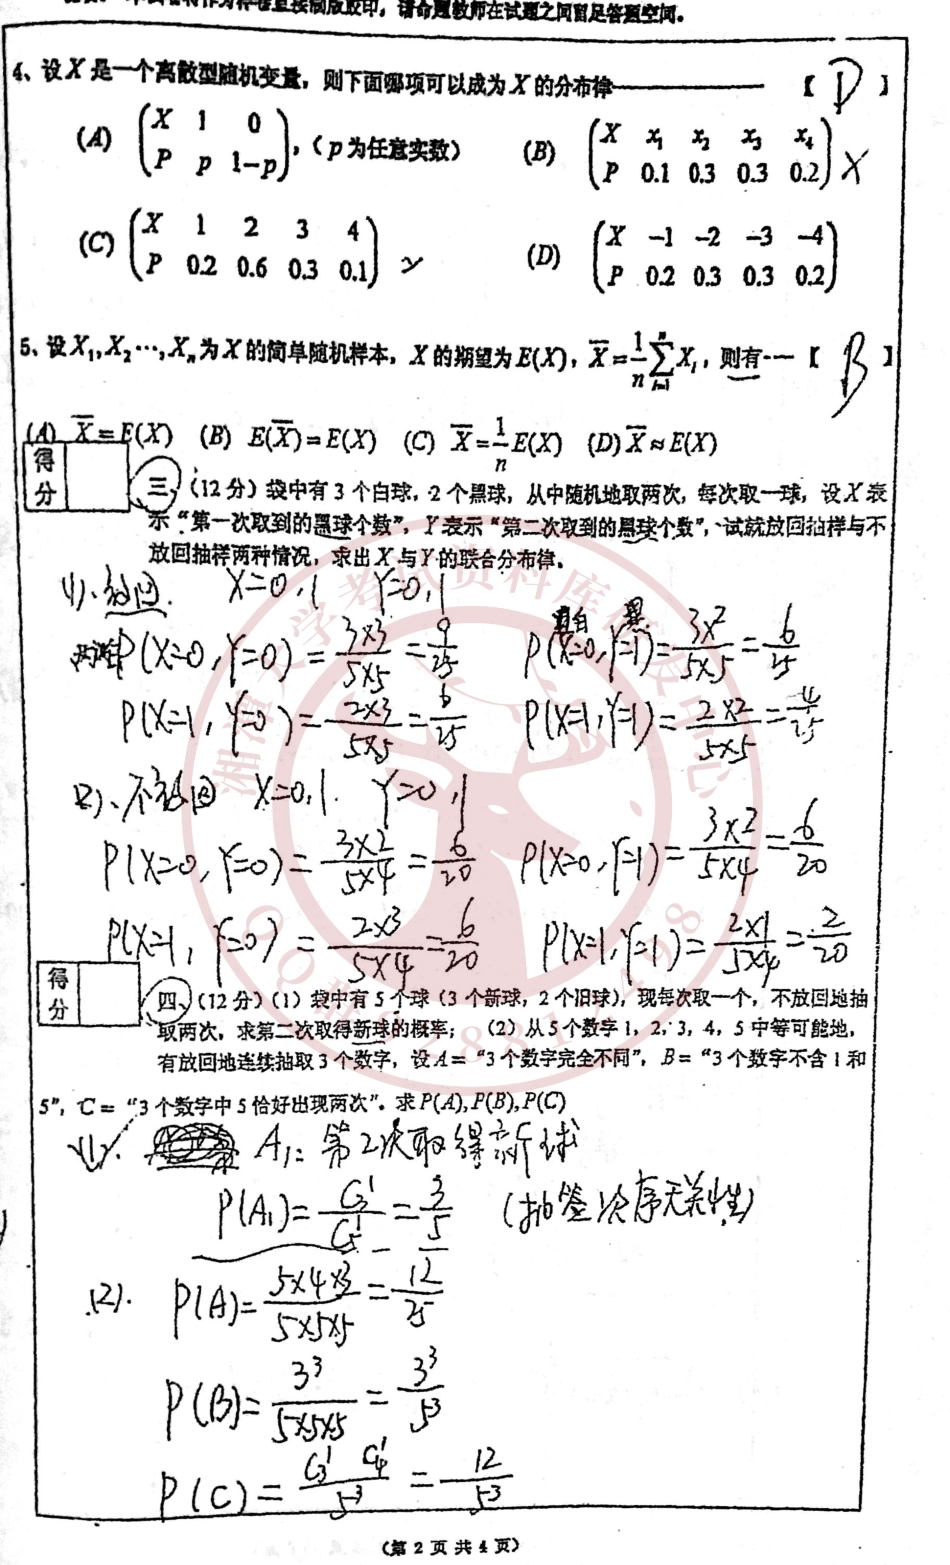 本页为将作为样卷直接制版胶印，请命题教师在试题之间留足答题空间。
4、设X是一个离散型随机变量，则下面哪项可以成为X的分布律————【 D 】
(A) (X 1 0
P p 1-p)，（p为任意实数） (B) (X x₁ x₂ x₃ x₄
P 0.1 0.3 0.3 0.2) X
(C) (X 1 2 3 4
P 0.2 0.6 0.3 0.1) (D) (X -1 -2 -3 -4
P 0.2 0.3 0.3 0.2)
5、设X₁,X₂…,Xₙ为X的简单随机样本，X的期望为E(X)，X̄=1/n∑ᵢ₌₁ⁿXᵢ，则有---【 B 】
(A) X̄=E(X) (B) E(X̄)=E(X) (C) X̄=1/n E(X) (D) X̄≈E(X)
得分
三、（12分）袋中有3个白球，2个黑球，从中随机地取两次，每次取一球，设X表
示“第一次取到的黑球个数”，Y表示“第二次取到的黑球个数”，试就放回抽样与不
放回抽样两种情况，求出X与Y的联合分布律。
(1)、放回. X=0,1 Y=0,1
P(X=0,Y=0)=3×3/5×5=9/25 P(X=0,Y=1)=3×2/5×5=6/25
P(X=1,Y=0)=2×3/5×5=6/25 P(X=1,Y=1)=2×2/5×5=4/25
2)、不放回 X=0,1. Y=0,1
P(X=0,Y=0)=3×2/5×4=6/20 P(X=0,Y=1)=3×2/5×4=6/20
P(X=1,Y=0)=2×3/5×4=6/20 P(X=1,Y=1)=2×1/5×4=2/20
得分
四、（12分）（1）袋中有5个球（3个新球，2个旧球），现每次取一个，不放回地抽
取两次，求第二次取得新球的概率； （2）从5个数字1，2，3，4，5中等可能地，
有放回地连续抽取3个数字，设A=“3个数字完全不同”，B=“3个数字不含1和
5”，C=“3个数字中5恰好出现两次”。求P(A),P(B),P(C)
(1). A₁: 第2次取得新球
P(A₁)=C₃¹/C₅¹=3/5 (抽签次序无关性)
(2). P(A)=5×4×3/5×5×5=12/25
P(B)=3³/5×5×5=3³/5³
P(C)=C₃¹ C₄¹/5³=12/5³
（第2页共4页）